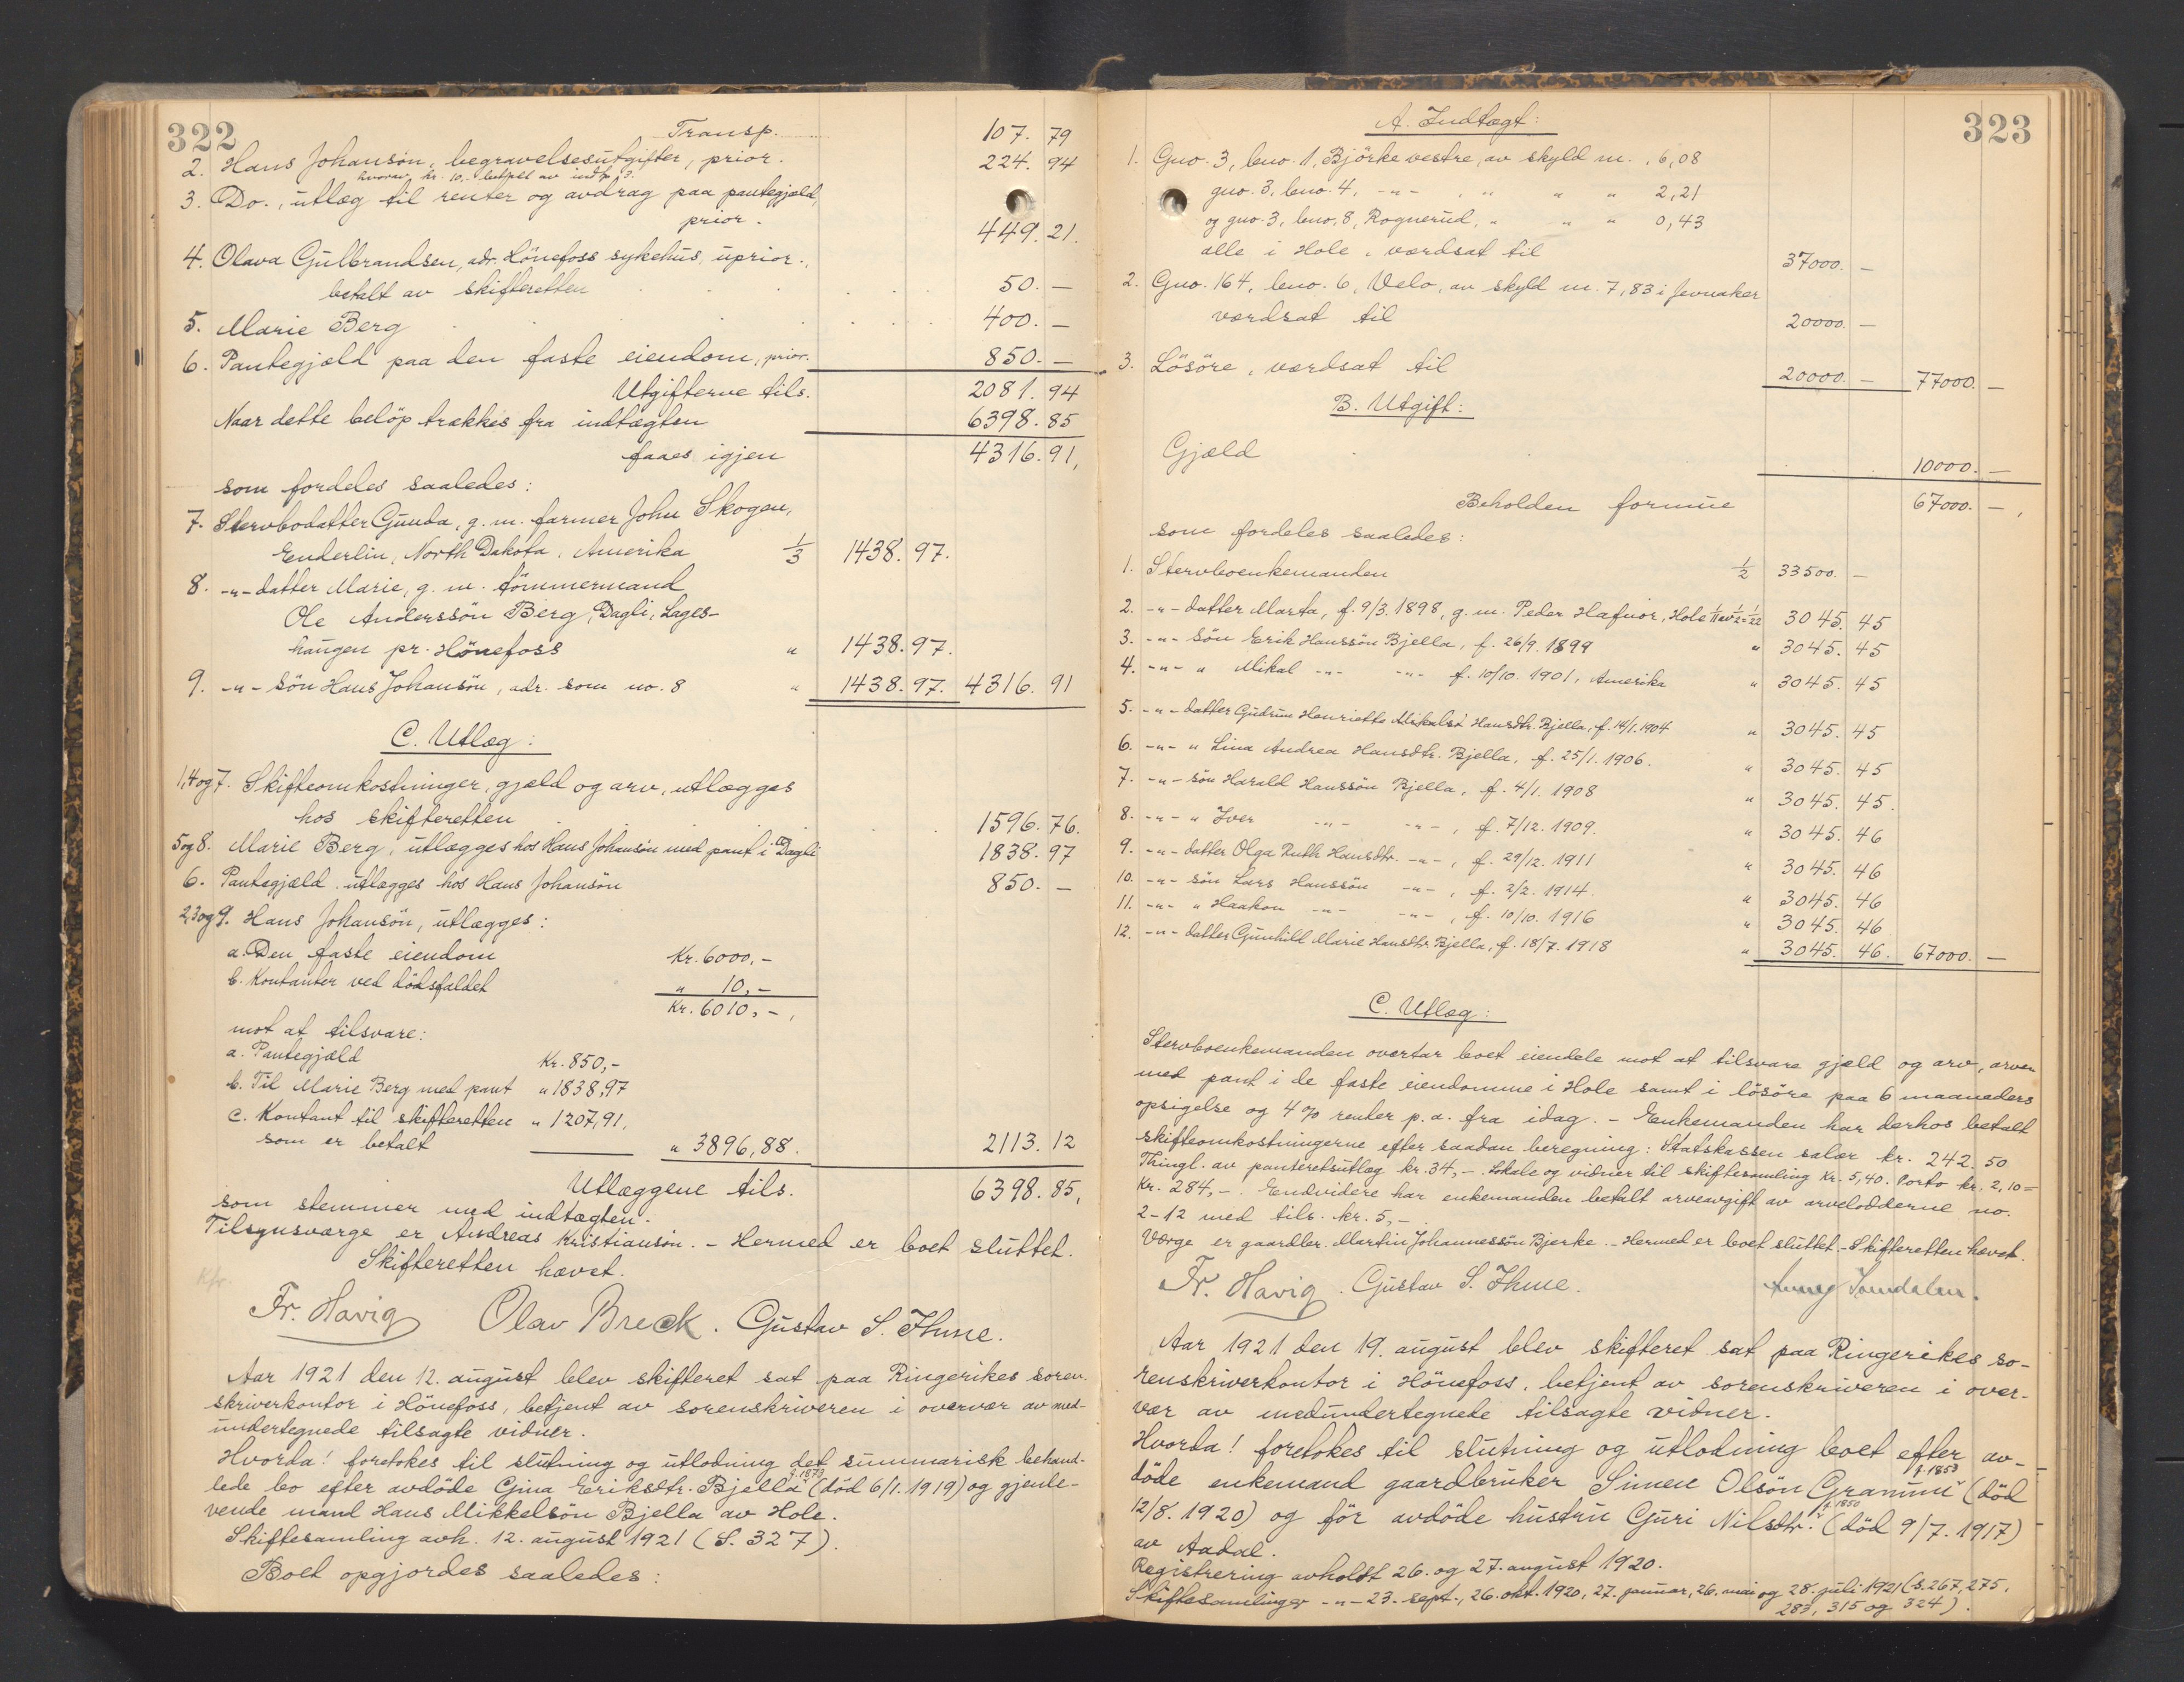 322
Transp. 107. 79
2. Hans Johansön, begravelsesutgifter, prior. 224. 94
hvorav kr. 10.- betalt av indt. 3.
3. Do., utlæg til renter og avdrag paa pantegjæld,
prior. 449. 21.
4. Olava Gulbrandsen, adr. Hönefoss sykehus, uprior.,
betalt av skifteretten 50. —
5. Marie Berg 400. —
6. Pantegjæld paa den faste eiendom, prior. 850. —
Utgifterne tils. 2081. 94
Naar dette belöp trækkes fra indtægten 6398. 85
faaes igjen 4316. 91,
som fordeles saaledes:
7. Stervbodatter Gunda, g. m. farmer John Skogen,
Enderlin, North Dakota, Amerika 1/3 1438. 97.
8. -"- datter Marie, g. m. tömmermand
Ole Anderssön Berg, Dagli, Lages-
haugen pr. Hönefoss " 1438. 97.
9. -"- sön Hans Johansön, adr. som no. 8 " 1438. 97. 4316. 91
C. Utlæg:
1,4 og 7. Skifteomkostninger, gjæld og arv, utlægges
hos skifteretten 1596. 76.
5 og 8. Marie Berg, utlægges hos Hans Johansön med pant i Dagli 1838. 97
6. Pantegjæld utlægges hos Hans Johansön 850. —
2,3 og 9. Hans Johansön, utlægges:
a. Den faste eiendom Kr. 6000,-
b. Kontanter ved dödsfaldet " 10,-
Kr. 6010,-,
mot at tilsvare:
a. Pantegjæld Kr. 850,-
b. Til Marie Berg med pant " 1838,97
c. Kontant til skifteretten " 1207,91,
som er betalt " 3896,88. 2113. 12
Utlæggene tils. 6398. 85,
som stemmer med indtægten.
Tilsynsværge er Andreas Kristiansön. - Hermed er boet sluttet.
Skifteretten hævet.
Kfr.
Fr. Havig Olav Breck. Gustav S. Ihme.
Aar 1921 den 12. august blev skifteret sat paa Ringerikes soren-
skriverkontor i Hönefoss, betjent av sorenskriveren i overvær av med-
undertegnede tilsagte vidner.
Hvorda! foretokes til slutning og utlodning det summarisk behand-
f. 1873
lede bo efter avdöde Gina Eriksdtr. Bjella (död 6/1. 1919) og gjenle-
vende mand Hans Mikkelsön Bjella av Hole.
Skiftesamling avh. 12. august 1921 (S. 327).
Boet opgjordes saaledes:
323
A. Indtægt:
1. Gno. 3, bno. 1, Björke vestre, av skyld m. 6,08
gno. 3, bno. 4, -"- " " " 2,21
og gno. 3, bno. 8, Rognerud, " " " 0,43
alle i Hole, værdsat til 37000. —
2. Gno. 164, bno. 6, Velo, av skyld m. 7,83 i Jevnaker
værdsat til 20000. —
3. Lösöre, værdsat til 20000. — 77000. —
B. Utgift:
Gjæld 10000. —
Beholden formue 67000. —,
som fordeles saaledes:
1. Stervboenkemanden 1/2 33500. —
2. -"- datter Marta, f. 9/3. 1898, g. m. Peder Hafnor, Hole 1/11 av 1/2 = 1/22 3045. 45
3. -"- sön Erik Hanssön Bjella, f. 26/9. 1899 " 3045. 45
4. -"- " Mikal -"- -"- f. 10/10. 1901, Amerika " 3045. 45
5. -"- datter Gudrun Henriette Mikalsi Hansdtr. Bjella, f. 14/1. 1904 " 3045. 45
6. -"- " Lina Andrea Hansdtr. Bjella, f. 25/1. 1906. " 3045. 45
7. -"- sön Harald Hanssön Bjella, f. 4/1. 1908 " 3045. 45.
8. -"- " Iver -"- -"-, f. 7/12. 1909. " 3045. 46
9. -"- datter Olga Ruth Hansdtr. -"-, f. 29/12. 1911 " 3045. 46
10. -"- sön Lars Hanssön -"-, f. 2/2. 1914. " 3045. 46
11. -"- " Haakon -"- -"-, f. 10/10. 1916 " 3045. 46
12. -"- datter Gunhild Marie Hansdtr. Bjella, f. 18/7. 1918 " 3045. 46. 67000. —
C. Utlæg:
Stervboenkemanden overtar boet eiendele mot at tilsvare gjæld og arv, arven
med pant i de faste eiendomme i Hole samt i lösöre paa 6 maaneders
opsigelse og 4% renter p.a. fra idag. - Enkemanden har derhos betalt
skifteomkostningerne efter saadan beregning: Statskassen salær kr. 242. 50
Thingl. av panteretsutlæg kr. 34,-. Lokale og vidner til skiftesamling kr. 5,40. Porto kr. 2,10 =
Kr. 284,-. Endvidere har enkemanden betalt arveavgift av arvelodderne no.
2-12 med tils. kr. 5,-
Værge er gaardbr. Martin Johannessön Bjerke. - Hermed er boet sluttet. - Skifteretten hævet.
Fr. Havig. Gustav S. Ihme.
Aar 1921 den 19. august blev skifteret sat paa Ringerikes so-
renskriverkontor i Hönefoss, betjent av sorenskriveren i over-
vær av medundertegnede tilsagte vidner.
Hvorda! foretokes til slutning og utlodning boet efter av-
f. 1853
döde enkemand gaardbruker Simen Olsön Gramm (död
f. 1850
12/8. 1920) og för avdöde hustru Guri Nilsdtr. (död 9/7. 1917)
av Aadal.
Registrering avholdt 26. og 27. august 1920.
Skiftesamlinger -"- 23. sept., 26. okt. 1920, 27. januar, 26. mai og 28. juli 1921 (S. 267, 275,
283, 315 og 324).